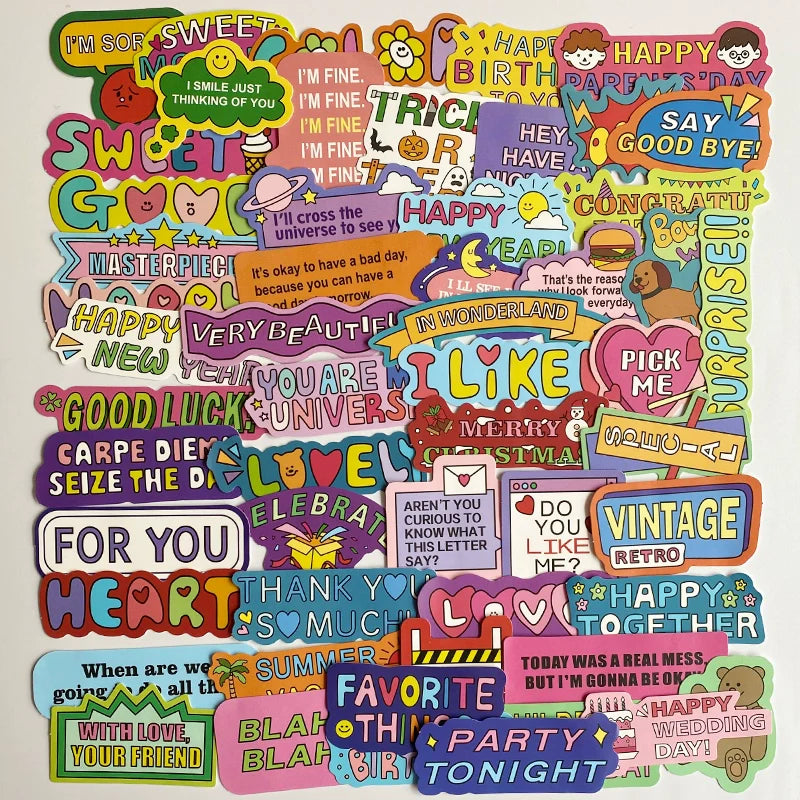 I'M SOR
SWEET
I SMILE JUST
THINKING OF YOU
HAPP
BIRTH
TO YO
HAPPY
PARENTS'DAY
I'M FINE.
I'M FINE.
I'M FINE.
I'M FINE.
I'M FINE.
TRICK
OR
HEY,
HAVE A
SAY
GOOD BYE!
SWEET
GOOD
I'll cross the
universe to see y
HAPPY
W YEAR!
CONGRATU
MASTERPIEC
It's okay to have a bad day,
because you can have a
I LL SEE
That's the reaso
why I look forwa
everyday
SURPRISE!!
HAPPY
NEW YEAR
VERY BEAUTIFU
IN WONDERLAND
YOU ARE M
UNIVERS
I LIKE
PICK
ME
GOOD LUCK.
MERRY
CHRISTMA
SPECIAL
CARPE DIEM
SEIZE THE DA
LOVELY
FOR YOU
ELEBRATE
AREN'T YOU
CURIOUS TO
KNOW WHAT
THIS LETTER
SAY?
DO
YOU
LIKE
ME?
VINTAGE
RETRO
HEART
THANK YOU
SO MUCH!
LOVE
HAPPY
TOGETHER
When are we
going to do all th
SUMMER
TODAY WAS A REAL MESS,
BUT I'M GONNA BE OKAY
WITH LOVE,
YOUR FRIEND
BLAH
BLAH
FAVORITE
THING
BIRT
PARTY
TONIGHT
HAPPY
WEDDING
DAY!